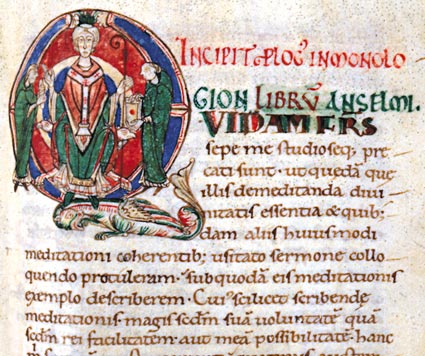 INCIPIT PLOG' IN MONOLO
GION LIBRŪ ANSELMI.
QUIDAM FRS
sepe me studioseq; pre
cati sunt. ut quędā que
illis de meditanda diui
nitatis essentia & quib;
dam aliis huiusmodi
meditationi coherentib; usitato sermone collo
quendo protuleram. sub quodā eis meditationis
exemplo describerem. Cui' scilicet scribendę
meditationis magis scdm suā uoluntatē quā
scdm rei facilitatem aut meā possibilitatē hanc